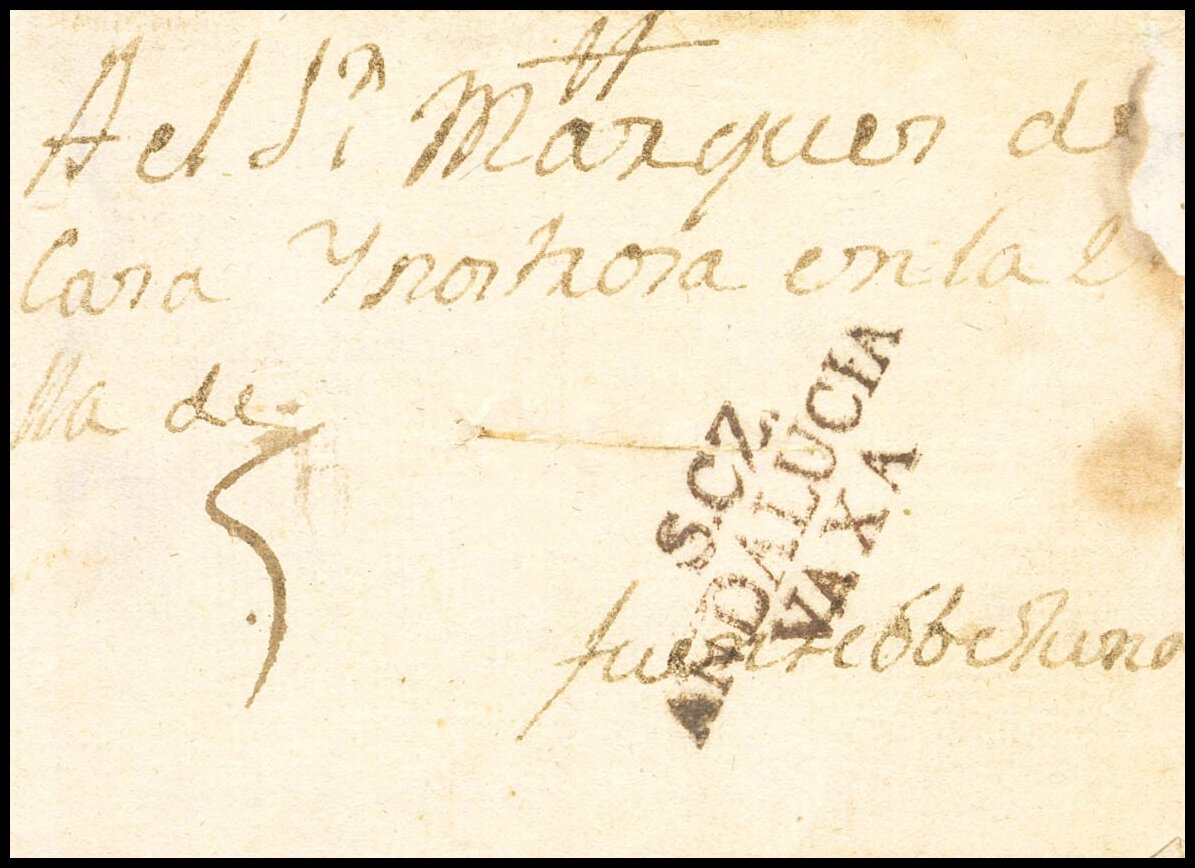 A el Sr Marques de
Casa Ynostrosa en la Vi
lla de
S.CZ.
ANDALUCIA
VAXA
fuenteobbejuna